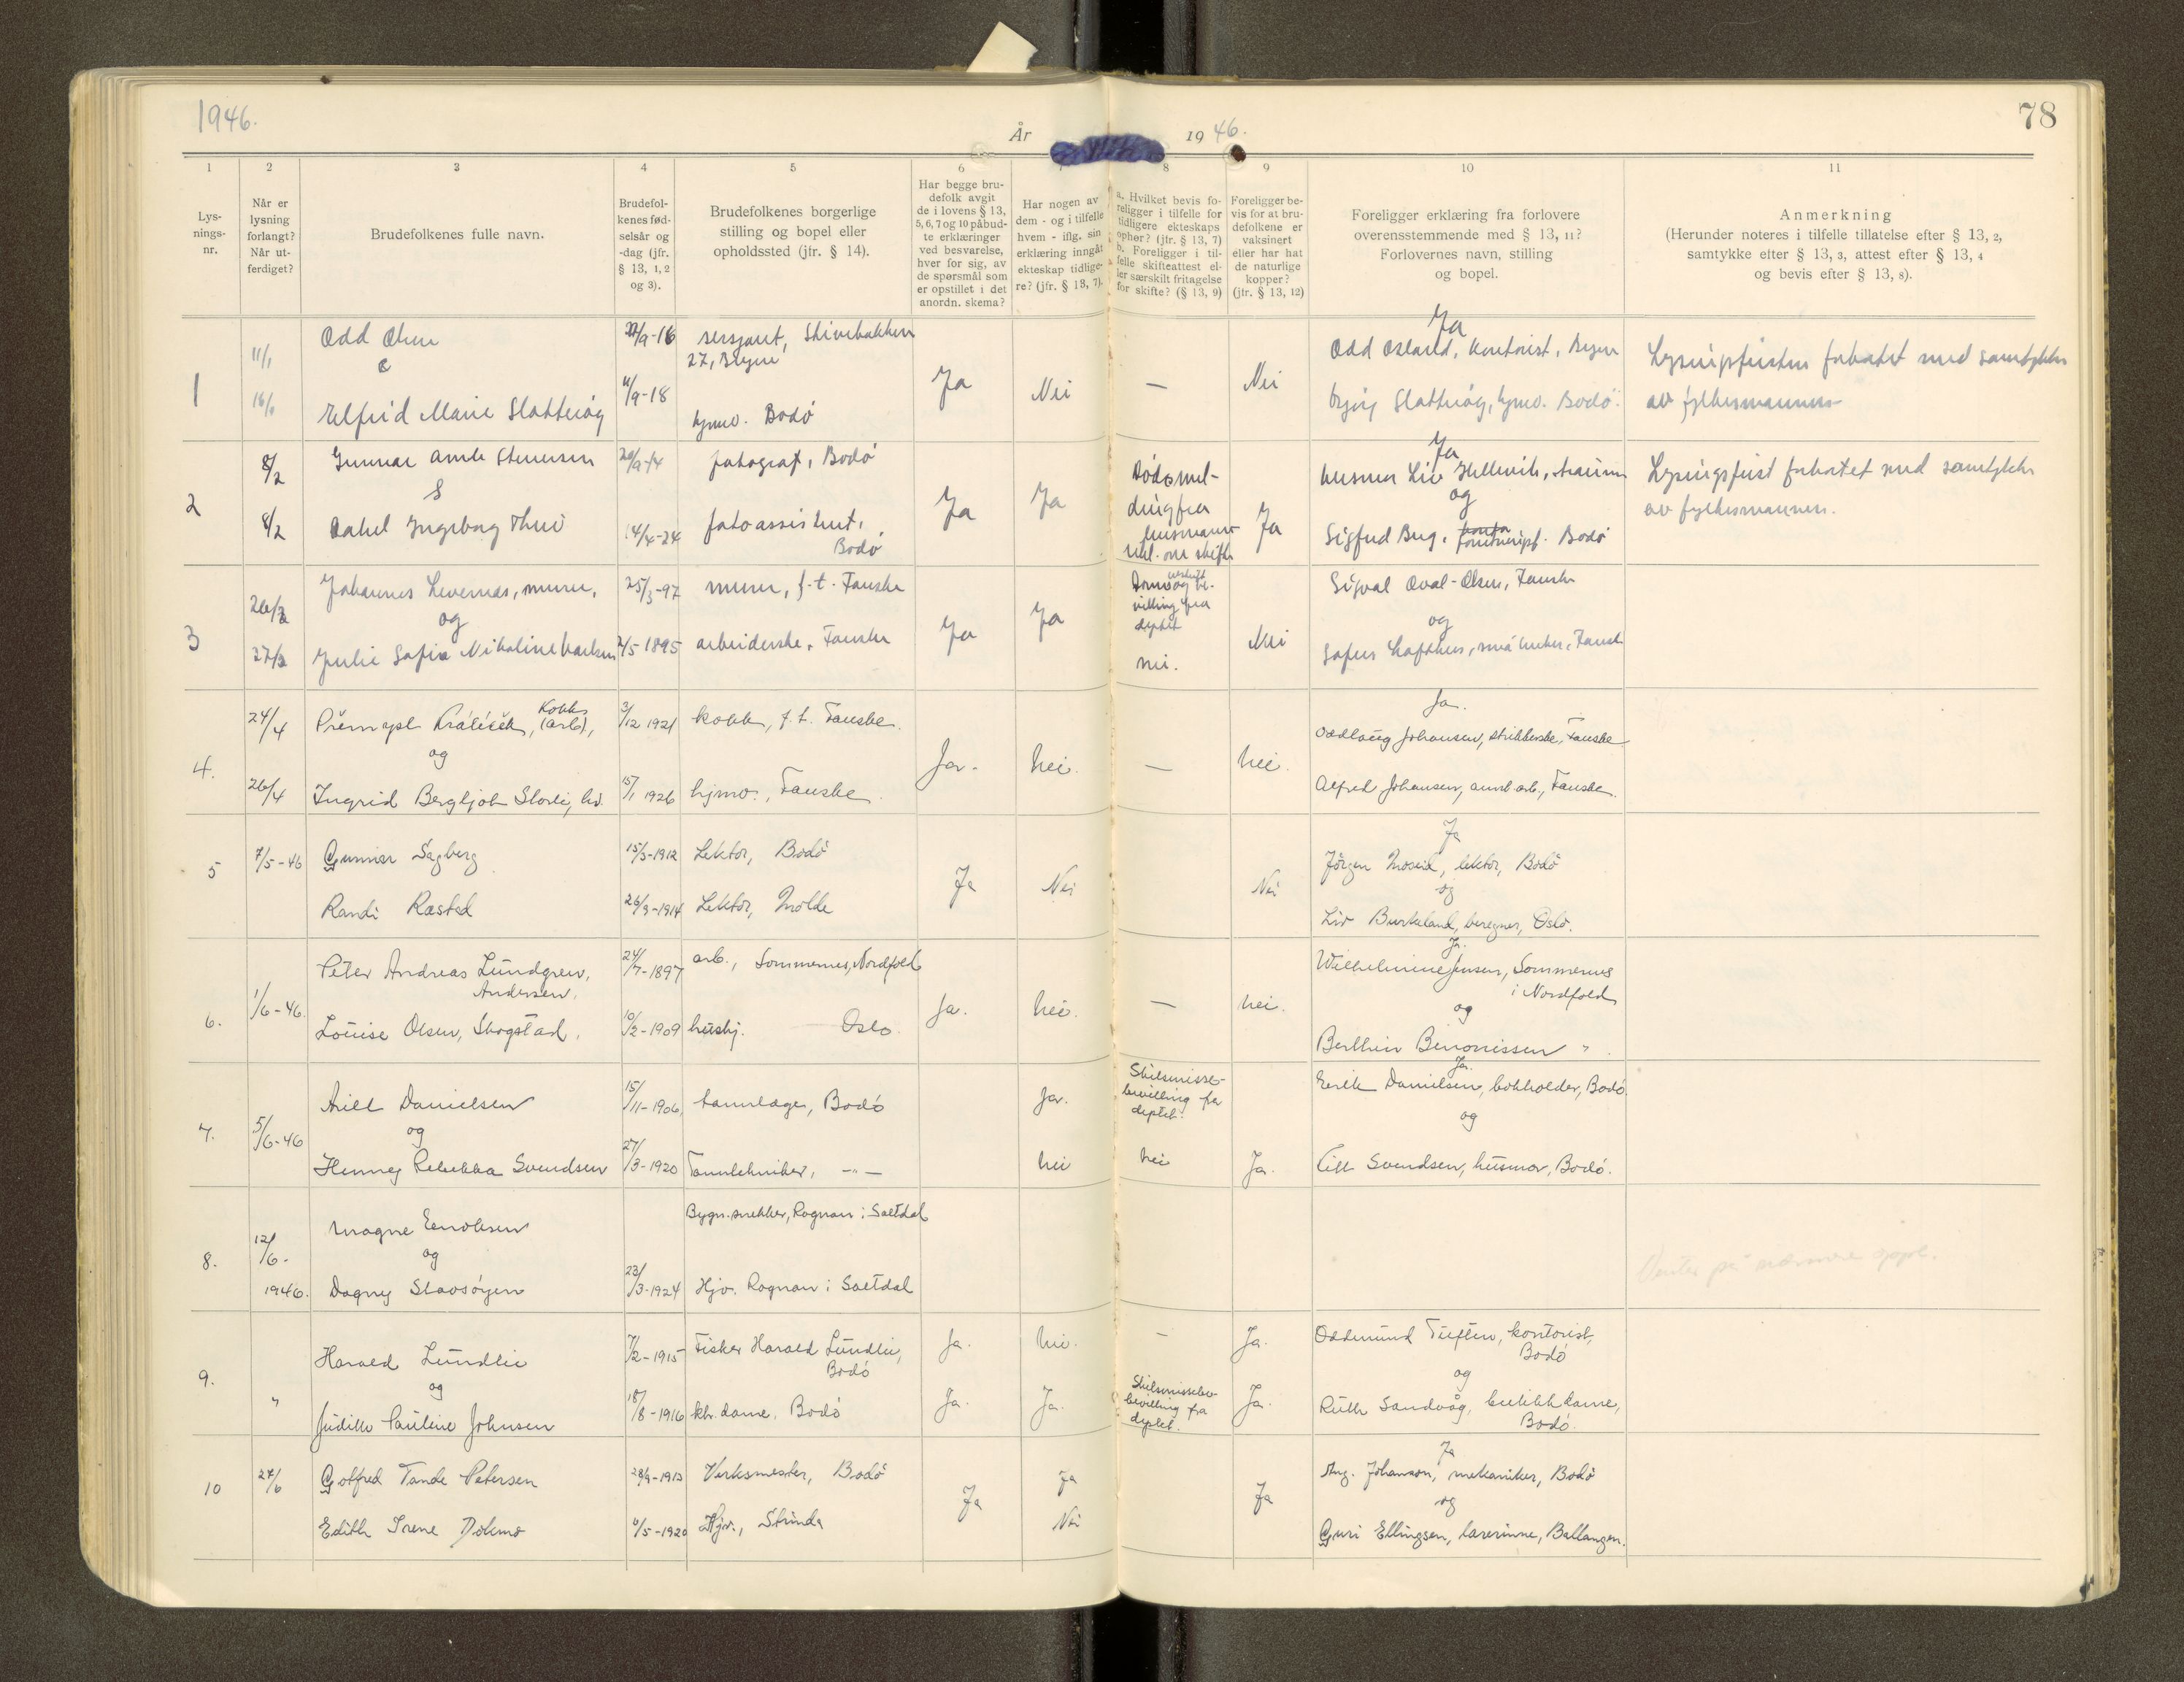 1946.
År 1946.
78
1
2
3
4
5
6
8
9
10
11
Lys-
nings-
nr.
Når er
lysning
forlangt?
Når ut-
ferdiget?
Brudefolkenes fulle navn.
Brudefol-
kenes fød-
selsår og
-dag (jfr.
§ 13, 1, 2
og 3).
Brudefolkenes borgerlige
stilling og bopel eller
opholdssted (jfr. § 14).
Har begge bru-
defolk avgit
de i lovens § 13,
5, 6, 7 og 10 påbud-
te erklæringer
ved besvarelse,
hver for sig, av
de spørsmål som
er opstillet i det
anordn. skema?
Har nogen av
dem - og i tilfelle
hvem - iflg. sin
erklæring inngått
ekteskap tidlige-
re? (jfr. § 13, 7).
a. Hvilket bevis fo-
religger i tilfelle for
tidligere ekteskaps
ophør? (jfr. § 13, 7)
b. Foreligger i til-
felle skifteattest el-
ler særskilt fritagelse
for skifte? (§ 13, 9)
Foreligger be-
vis for at bru-
defolkene er
vaksinert
eller har hat
de naturlige
kopper?
(jfr. § 13, 12)
Foreligger erklæring fra forlovere
overensstemmende med § 13, 11?
Forlovernes navn, stilling
og bopel.
Anmerkning
(Herunder noteres i tilfelle tillatelse efter § 13, 2,
samtykke efter § 13, 3, attest efter § 13, 4
og bevis efter § 13, 8).
1
11/1
Odd Olsen
&
Elfrid Marie Slotteråg
/9-16
11/9-18
sersjant,
27, Bergen
hjmv. Bodö
Ja
Nei
—
Nei
Ja
Odd Osland, kontorist, Bergen
Slotteråg, hjmv. Bodö.
Lysningsfristen forkortet med samtykke
av fylkesmannen
2
8/2
8/2
Gunnar Arnle Stenersen
&
Rakel Ingeborg Thue
20/9-14
14/4-24
fotograf, Bodö
fotoassistent,
Bodö
Ja
Ja
Dödsmel-
ding fra
Ja
Ja
husmor Liv Hellevik,
og
Sigfred Berg, Bodö
Lysningsfrist forkortet med samtykke
av fylkesmannen.
3
26/3
27/3
Johannes Levernes, murer,
og
Julie Sofie Nikoline
25/3-97
2/5 1895
murer, f.t. Fauske
arbeiderske, Fauske
Ja
Ja
villing fra
deptet
nei.
Nei
Sigval Oval-Olsen, Fauske
og
4.
24/4
26/4
Přemysl Králíček, Kokk
(arb),
og
Ingrid Bergljot Storli, hv.
3/12 1921
15/1 1926
kokk, f.t. Fauske.
hjmv., Fauske.
Ja.
Nei.
—
Nei.
Ja.
Oddlaug Johansen, strikkerske, Fauske
Alfred Johansen, anl.arb., Fauske.
5
7/5-46
Gunnar Sagberg
Randi Røsted
15/3-1912
26/9-1914
Lektor, Bodö
Lektor, Molde
Ja
Nei
Nei
Ja
Jörgen Moseid, lektor, Bodö
og
Liv Burkeland, beregner, Oslo.
6.
1/6-46.
Peter Andreas Lundgren,
Andersen.
Louise Olsen, Skogstad.
24/7-1897
10/2-1909
arb., Sommernes, Nordfold
hushj. Oslo
Ja.
Nei.
—
Nei.
Ja.
Wilhelmine Jensen, Sommernes
i Nordfold
og
Berthin Benonissen "
7.
5/6-46
Arill Danielsen
og
Henny Rebekka Svendsen
15/11-1906
27/3-1920
tannlæge, Bodö
Tanntekniker, —"—
Ja.
Nei
Skilsmisse-
bevilling fra
deptet.
Nei
Ja.
Ja.
Eerik Danielsen, bokholder, Bodö.
og
Lill Svendsen, husmor, Bodö.
8.
12/6-
1946.
Magne Enoksen
og
Dagny Slavsöyen
23/3-1924
Bygn.snekker, Rognan i Saltdal
Hjv. Rognan i Saltdal
Venter på nærmere oppl.
9.
"
Harald Lundli
og
Judith Pauline Johnsen
7/2-1915
18/8-1916
Fisker Harald Lundli,
Bodö
ktr.dame, Bodö
Ja.
Ja.
Nei.
Ja.
—
Skilsmisse-
bevilling fra
deptet.
Ja.
Ja.
Oddmund Tuften, kontorist,
Bodö
og
Ruth Sandvåg, butikkdame,
Bodö.
10
24/6
Gotfred Tande Petersen
Edith Irene Dokmo
28/9-1913
6/5-1920
Verksmester, Bodö
Hjv., Strinda
Ja
Ja
Nei
Ja
Ja
Aug. Johanson, mekaniker, Bodö
og
Guri Ellingsen, lærerinne, Ballangen.